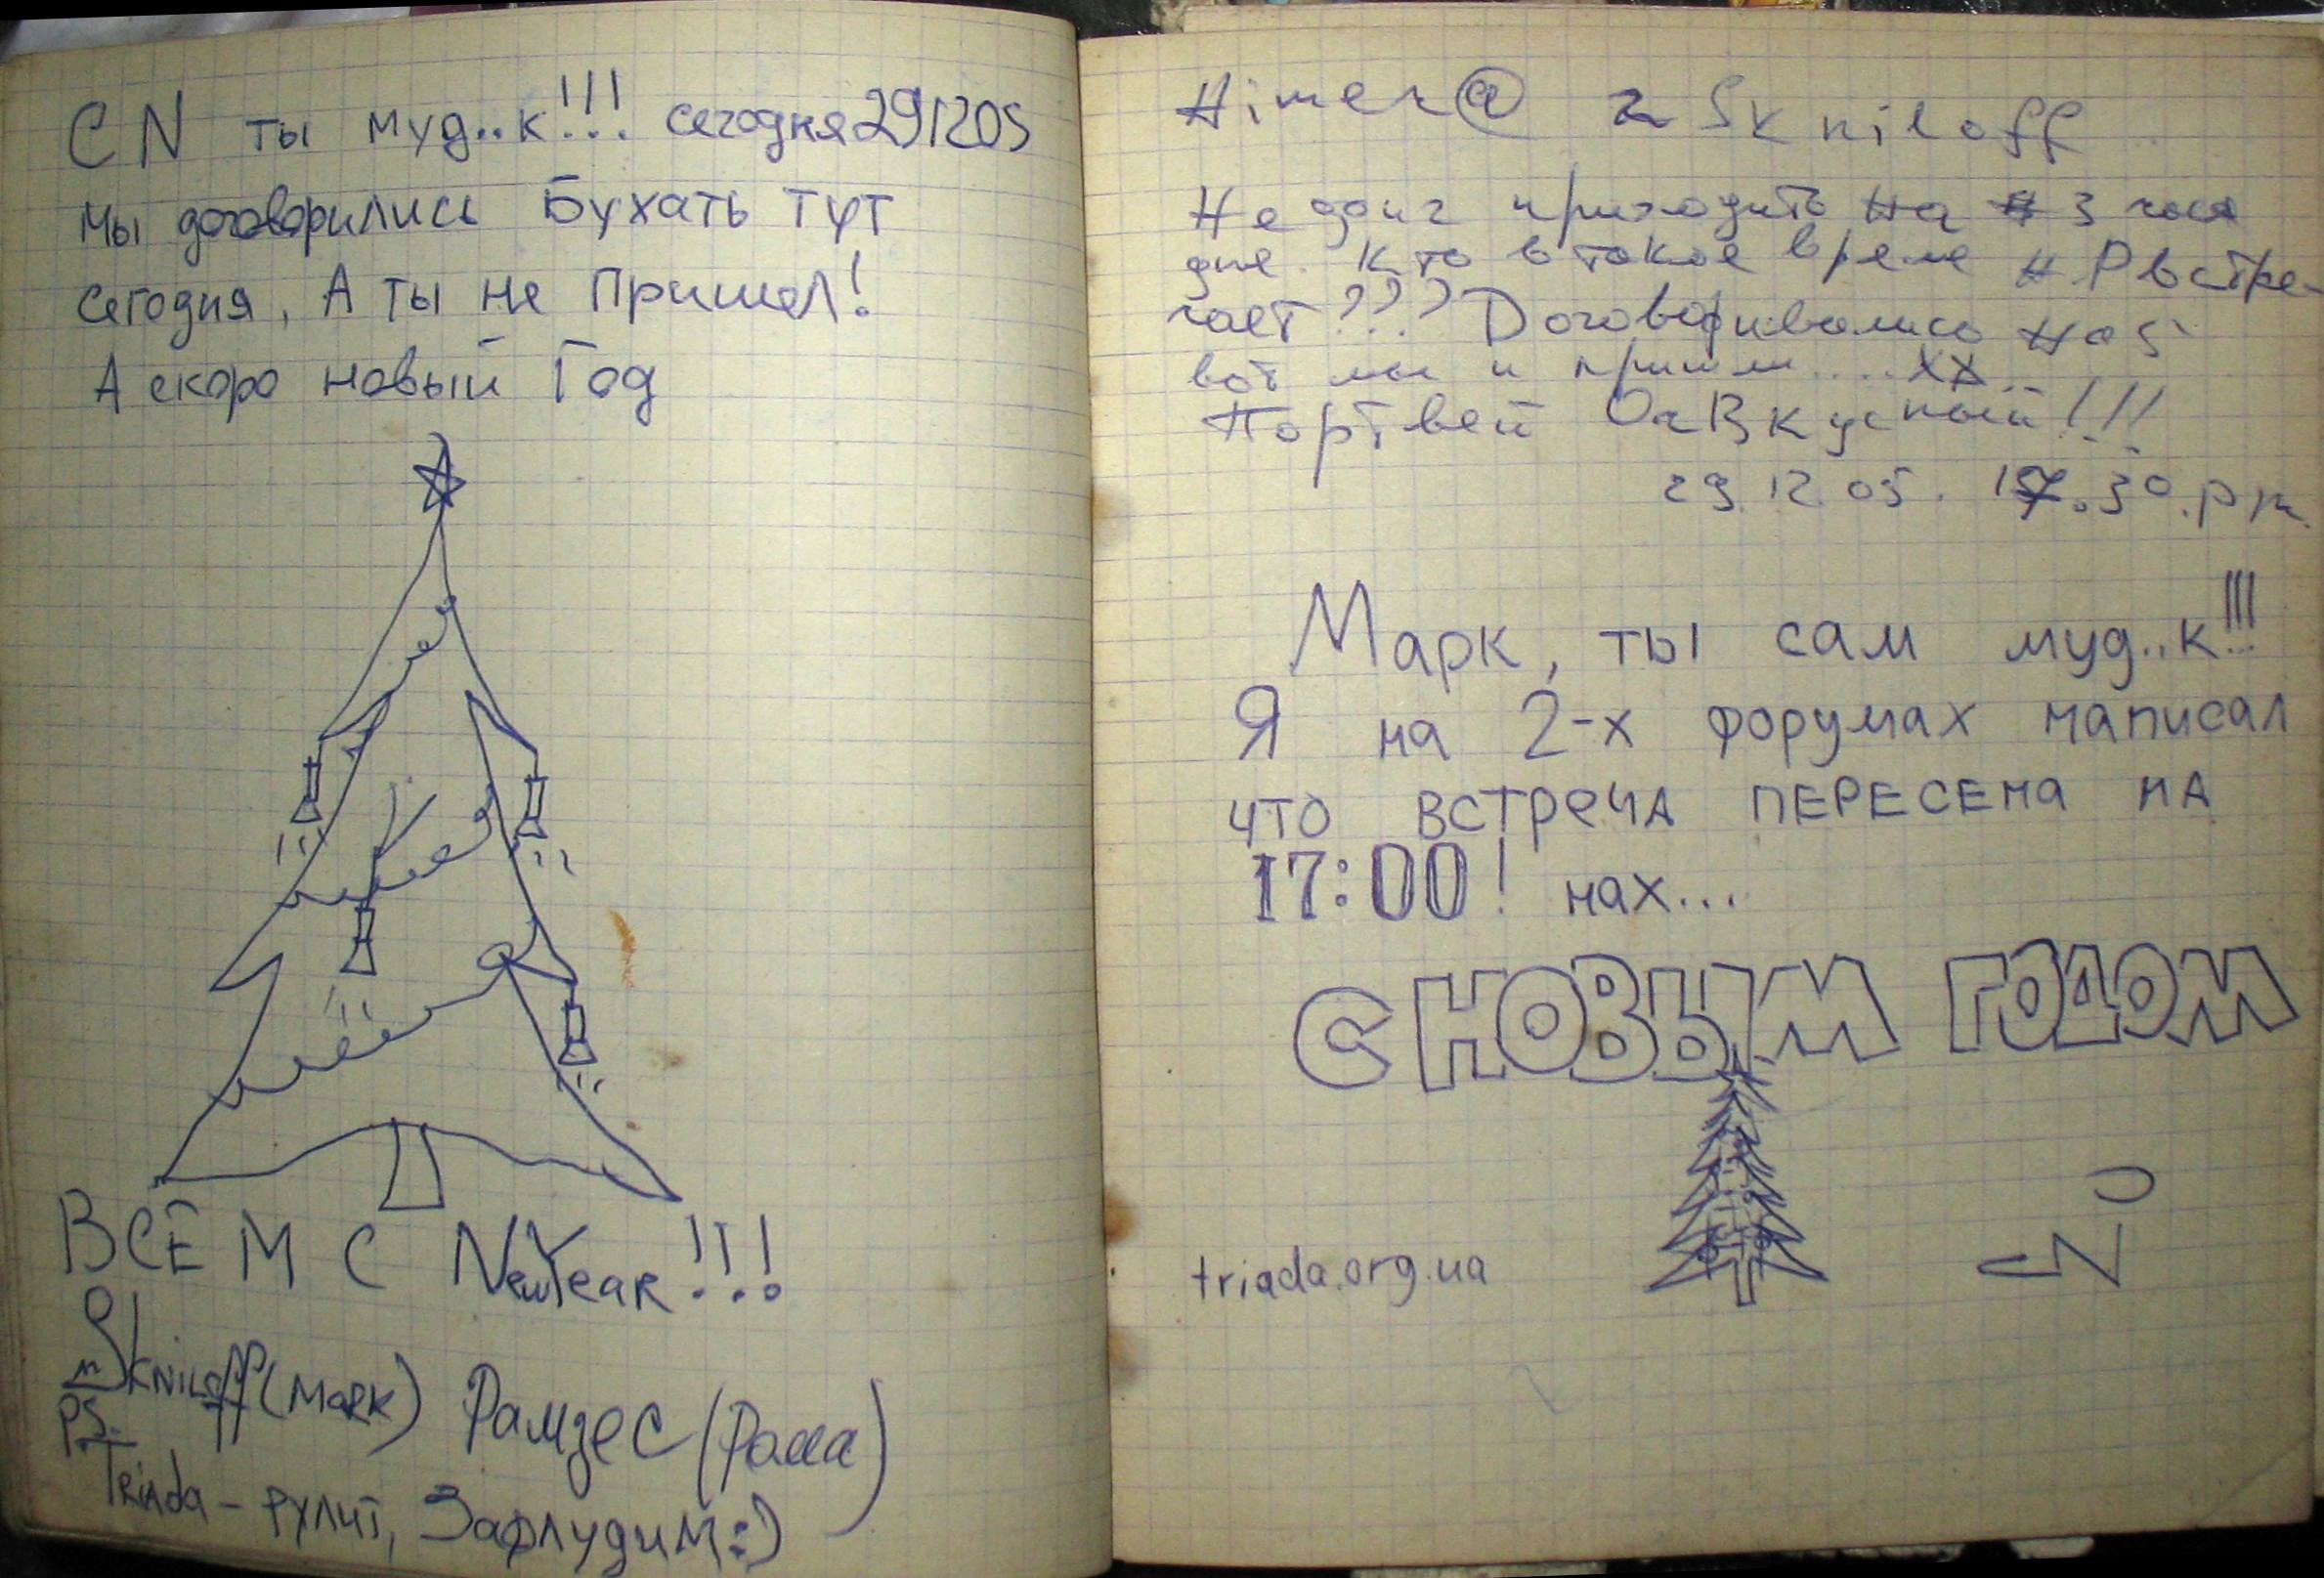 CN ты муд..к!!! сегодня 291205
мы договорились Бухать тут
сегодня, А ты не Пришел!
А скоро новый Год
ВСЕМ С New Year!!!
Skniloff (Mark) Рамзес (Рома)
PS.
Triada - рулит, Зафлудим :)
Himer@ 2 Skniloff
Не одиг приходить на 3 часа
дне. Кто в такое время НР встре-
чает??? Договаривались на 5
вот мы и пришли.... xx..
Портвей ОчВкусный!!!
29.12.05. .30.pm.
Марк, ты сам муд..к!!!
Я на 2-х форумах написал
что встречА ПЕРЕСЕНа НА
17:00! нах...
С НОВЫМ ГОДОМ
triada.org.ua
CN